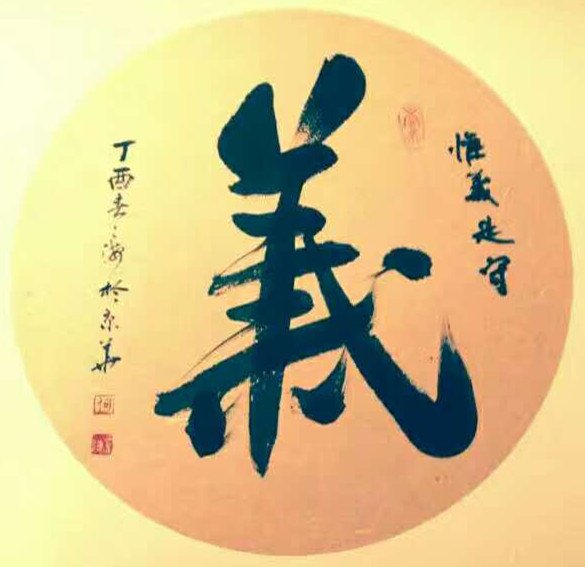 惟義是守
義
丁酉春海於京華